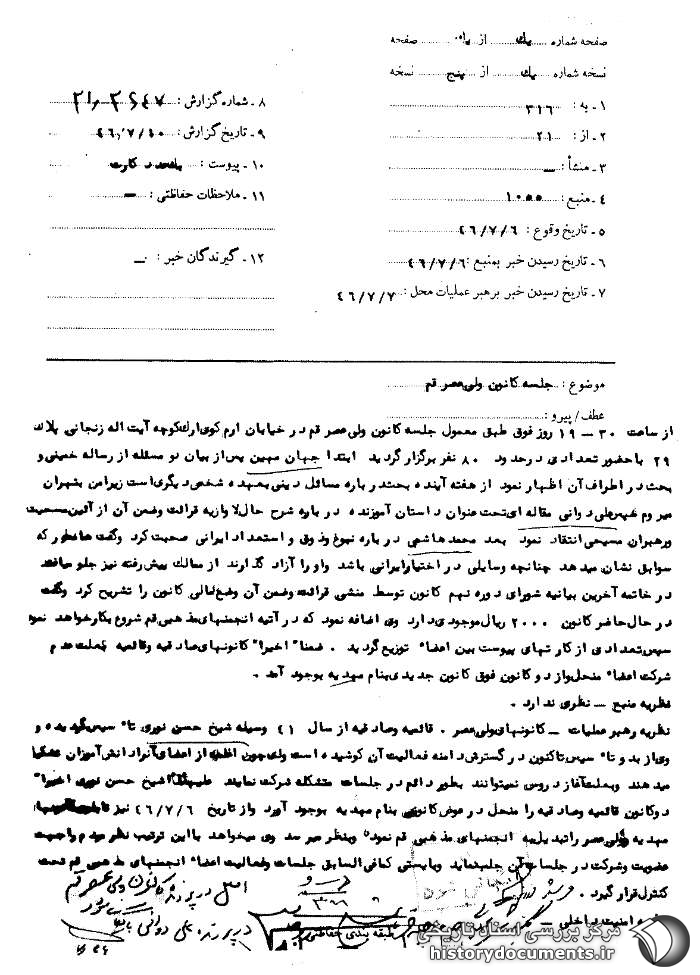 صفحه شماره یک از یک صفحه
نسخه شماره یک از پنج نسخه
۱ ـ به : ۳۱۶
۲ ـ از : ۲۱
۳ ـ منشأ : ــ
۴ ـ منبع : ۱۰۵۵
۵ ـ تاریخ وقوع : ۴۶/۷/۶
۶ ـ تاریخ رسیدن خبر بمنبع : ۴۶/۷/۶
۷ ـ تاریخ رسیدن خبر برهبر عملیات محل : ۴۶/۷/۷
۸ ـ شماره گزارش :
۹ ـ تاریخ گزارش : ۴۶/۷/۱۰
۱۰ ـ پیوست : یکعدد کارت
۱۱ ـ ملاحظات حفاظتی : ــ
۱۲ ـ گیرندگان خبر : ــ
موضوع : جلسه کانون ولی‌عصر قم
عطف / پیرو :
از ساعت ۳۰ ــ ۱۹ روز فوق طبق معمول جلسه کانون ولی‌عصر قم در خیابان ارم کوی ارک کوچه آیت اله زنجانی پلاک
۲۹ با حضور تعدادی در حدود ۸۰ نفر برگزار گردید ابتدا جهان مهین پس از بیان دو مسئله از رساله خمینی و
بحث در اطراف آن اظهار نمود از هفته آینده بحث درباره مسائل دینی بعهده شخص دیگری است زیرا من بتهران
میروم سپس علی دوانی مقاله ای تحت عنوان داستان آموزنده درباره شرح حال لاوازیه قرائت وضمن آن از آئین مسیحیت
ورهبران مسیحی انتقاد نمود بعد محمد هاشمی درباره نبوغ وذوق و استعداد ایرانی صحبت کرد وگفت همانطور که
سوابق نشان میدهد چنانچه وسایلی در اختیار ایرانی باشد واو را آزاد گذارند از ممالک پیش رفته نیز جلو میافتد
در خاتمه آخرین بیانیه شورای دوره نهم کانون توسط منشی قرائت وضمن آن وضع مالی کانون را تشریح کرد وگفت
در حال حاضر کانون ۲۰۰۰ ریال موجودی دارد وی اضافه نمود که در آتیه انجمنهای مذهبی قم شروع بکار خواهد نمود
سپس تعدادی از کارتهای پیوست بین اعضاء توزیع گردید . ضمناً اخیراً کانونهای صادقیه وقائمیه بعلت عدم
شرکت اعضاء منحل واز دو کانون فوق کانون جدیدی بنام مهدیه بوجود آمد .
نظریه منبع ــ نظری ندارد .
نظریه رهبر عملیات ــ کانونهای ولی‌عصر . قائمیه وصادقیه از سال ۴۱ وسیله شیخ حسن نوری تأسیس گردیده و
وی از بدو تأسیس تاکنون در گسترش دامنه فعالیت آن کوشیده است ولی چون اغلب از اعضای آنرا دانش آموزان تشکیل
میدهند وبعلت آغاز دروس نمیتوانند بطور دائم در جلسات متشکله شرکت نمایند شیخ حسن نوری اخیراً
دو کانون قائمیه وصادقیه را منحل در عوض کانونی بنام مهدیه بوجود آورد واز تاریخ ۴۶/۷/۶ نیز
مهدیه ولی‌عصر را تبدیل به انجمنهای مذهبی قم نموده وبنظر میرسد وی میخواهد با این ترتیب نظر مردم را جهت
عضویت وشرکت در جلسات آن جلب نماید وبایستی کمافی السابق جلسات وفعالیت اعضاء انجمنهای مذهبی قم تحت
کنترل قرار گیرد .
اصل در پرونده کانون ولی عصر قم
۳۱۶
امنیت داخلی ــ
طبقه بندی حفاظتی
در پرونده علی دوانی
مرکز بررسی اسناد تاریخی
historydocuments.ir